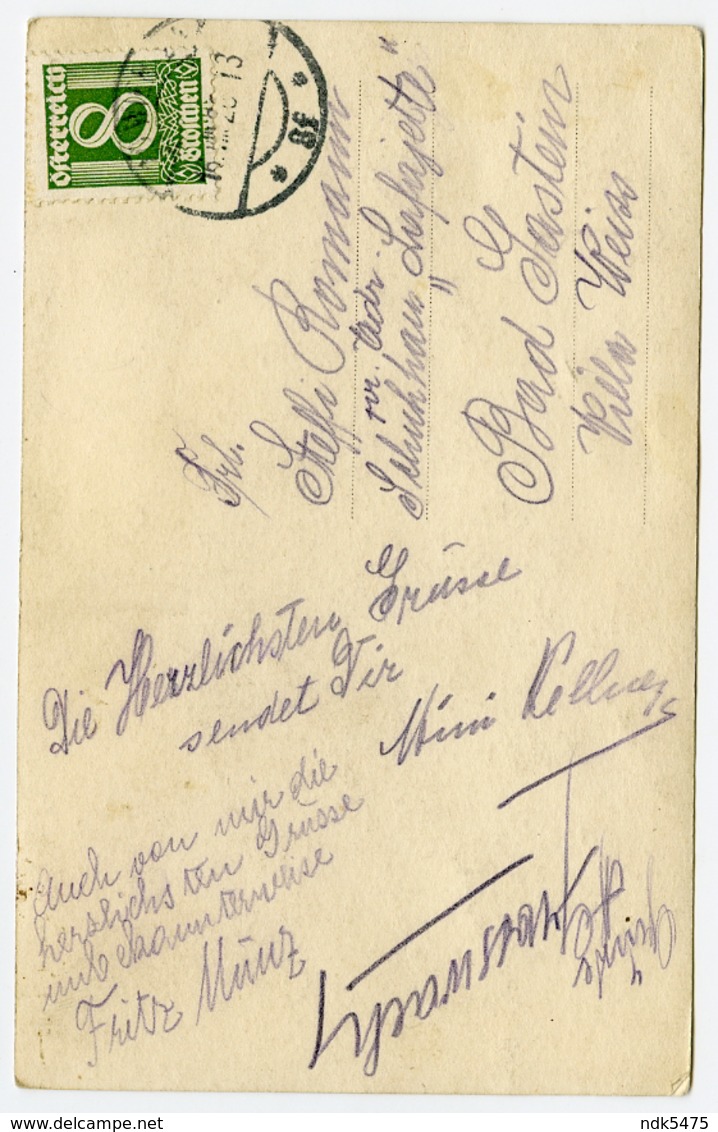 Österreich
8
Groschen
* 38 *
Frl.
Steffi Romann
pr. Adr.
Schuhhaus „Lafajette“
Bad Gastein
Villa Weiss
Die Herzlichsten Grüsse
sendet Dir
Mimi Kellner
Auch von mir die
herzlichsten Grüsse
unbekannterweise
Fritz Münz
ndk5475